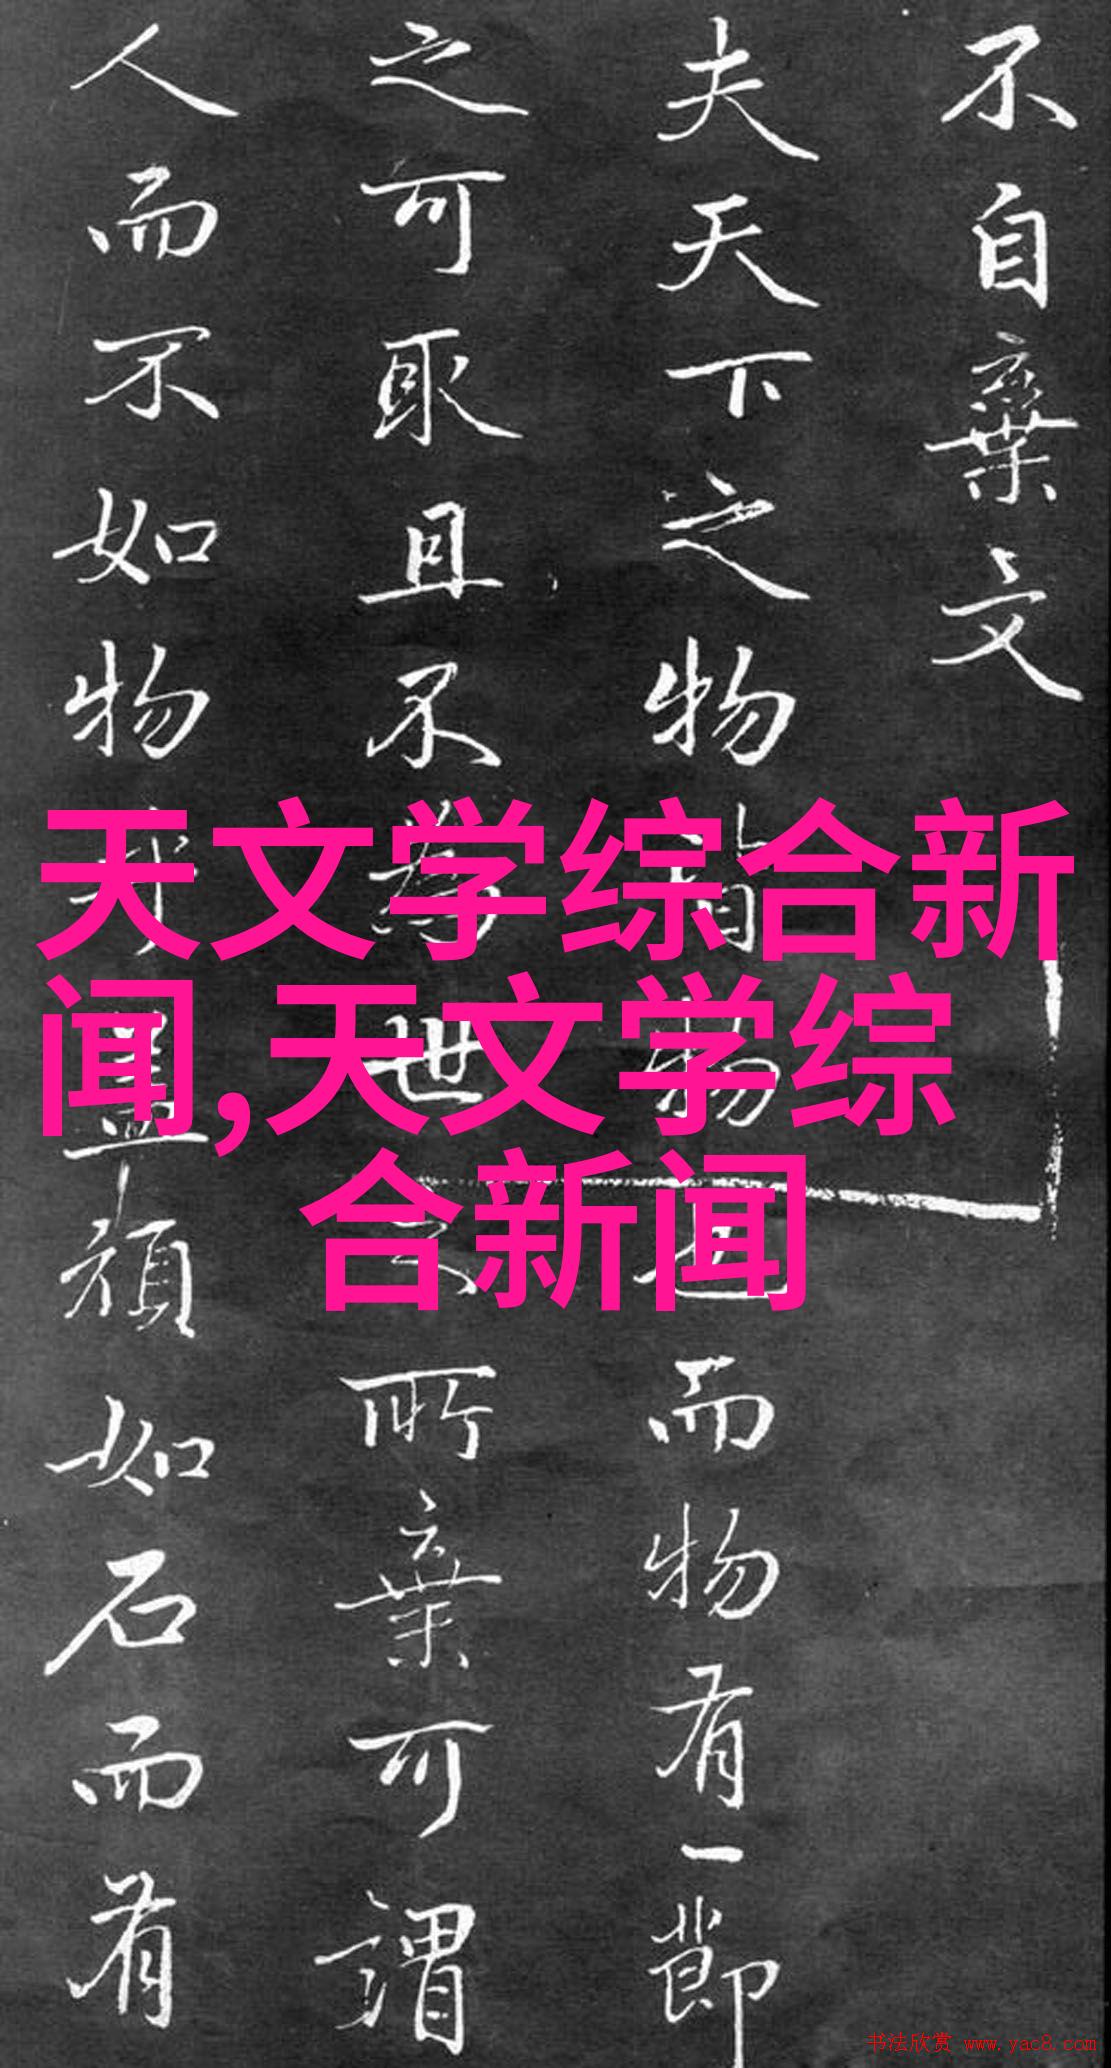 不自棄文
夫天下之物皆物也而物有一節
之可取且不為世之所棄可謂
人而不如物乎蓋頑如石而有
天文学综合新
闻,天文学综
合新闻
书法欣赏 www.yac8.com